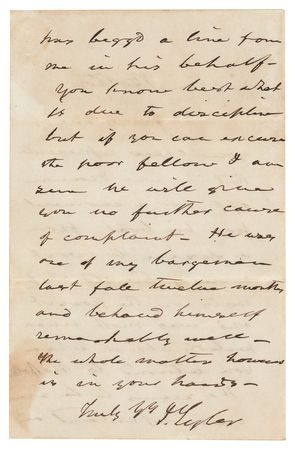 has begg'd a line from
me in his behalf -
You know best what
is due to discipline
but if you can excuse
the poor fellow I am
sure he will give
you no further cause
of complaint - He was
one of my bargemen
last fall twelve months
and behaved himself
remarkably well -
The whole matter however
is in your hands -
Truly Yrs J. Tyler